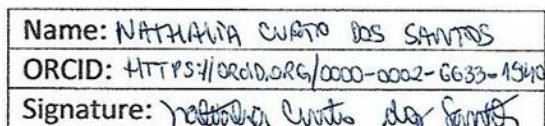 Name: NATHALIA CURTO DOS SANTOS
ORCID: HTTPS://ORCID.ORG/0000-0002-6633-1940
Signature: Nathalia Curto dos Santos